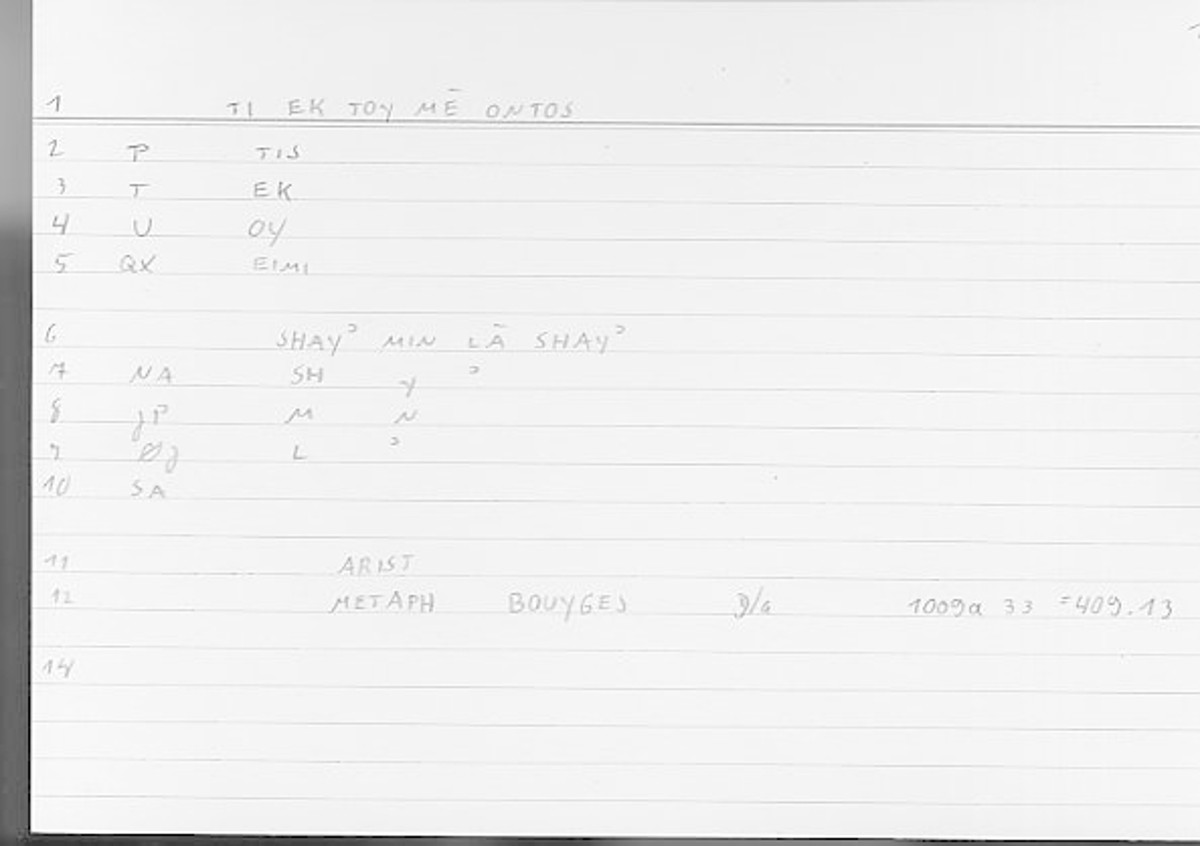 1 TI EK TOY MĒ ONTOS
2 P TIS
3 T EK
4 U OY
5 QX EIMI
6 SHAYʾ MIN LĀ SHAYʾ
7 NA SH Y ʾ
8 JP M N
9 ØJ L ʾ
10 SA
11 ARIST
12 METAPH BOUYGES D/a 1009a 33 =409.13
14